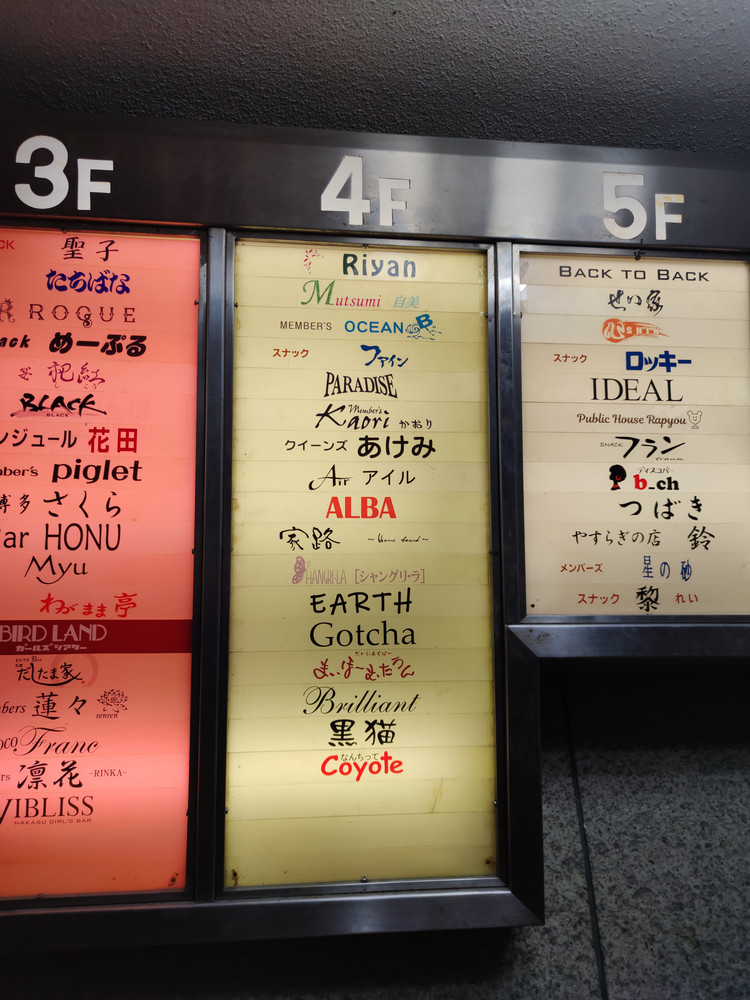 3F
CK 聖子
たちばな
ROGUE
ack めーぷる
BLACK
BLACK
ンジュール 花田
mber's piglet
博多 さくら
ar HONU
Myu
わがまま亭
BIRD LAND
ガールズシアター
だしたま家
mbers 蓮々 renren
oco Franc
rs 凛花 -RINKA-
VIBLISS
NAKASU GIRL'S BAR
4F
Riyan
Mutsumi 自美
MEMBER'S OCEAN B
スナック ファイン
PARADISE
Member's
Kaori かおり
クイーンズ あけみ
Air アイル
ALBA
家路 ~Home Road~
SHANGRI-LA [シャングリ・ラ]
EARTH
Gotcha
Brilliant
黒猫
なんちって
Coyote
5F
BACK TO BACK
せい家
スナック ロッキー
IDEAL
Public House Rapyou
SNACK フラン
ディスコバー
b_ch
つばき
やすらぎの店 鈴
メンバーズ 星の砂
スナック 黎 れい